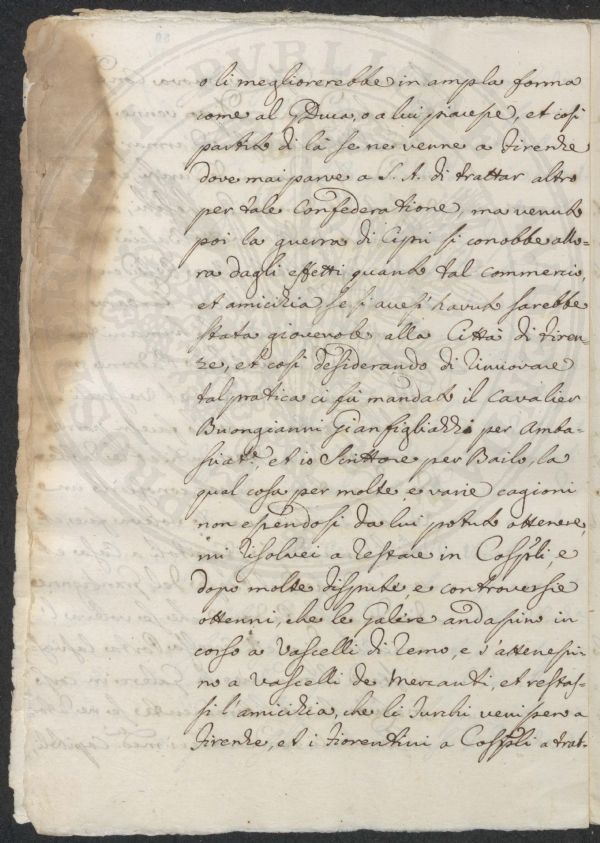 o li megliorerebbe in ampla forma
come al G.Duca, o a lui piacesse, et così
partito di là se ne venne a Firenze
dove mai parve a S. A. di trattar altro
per tale Confederatione, ma venuto
poi la guerra di Cipri si conobbe allo-
ra dagli effetti quanto tal commercio,
et amicizia se si avesse havuto sarebbe
stata giovevole alla Città di Firen-
ze, et così desiderando di rinnovare
tal pratica ci fù mandato il Cavalier
Buongianni Gianfigliazzi per Amba-
sciat.re, et io Scrittore per Bailo, la
qual cosa per molte e varie cagioni
non essendosi da lui potuto ottenere,
mi risolvei a restare in Cospoli, e
dopo molte dispute, e controversie
ottenni, che le Galere andassino in
corso a Vascelli di remo, e s'attenessi-
no a Vascelli de Mercanti, et restas-
si l'amicizia, che li Turchi venissero a
Firenze, et i Fiorentini a Cospoli a trat-